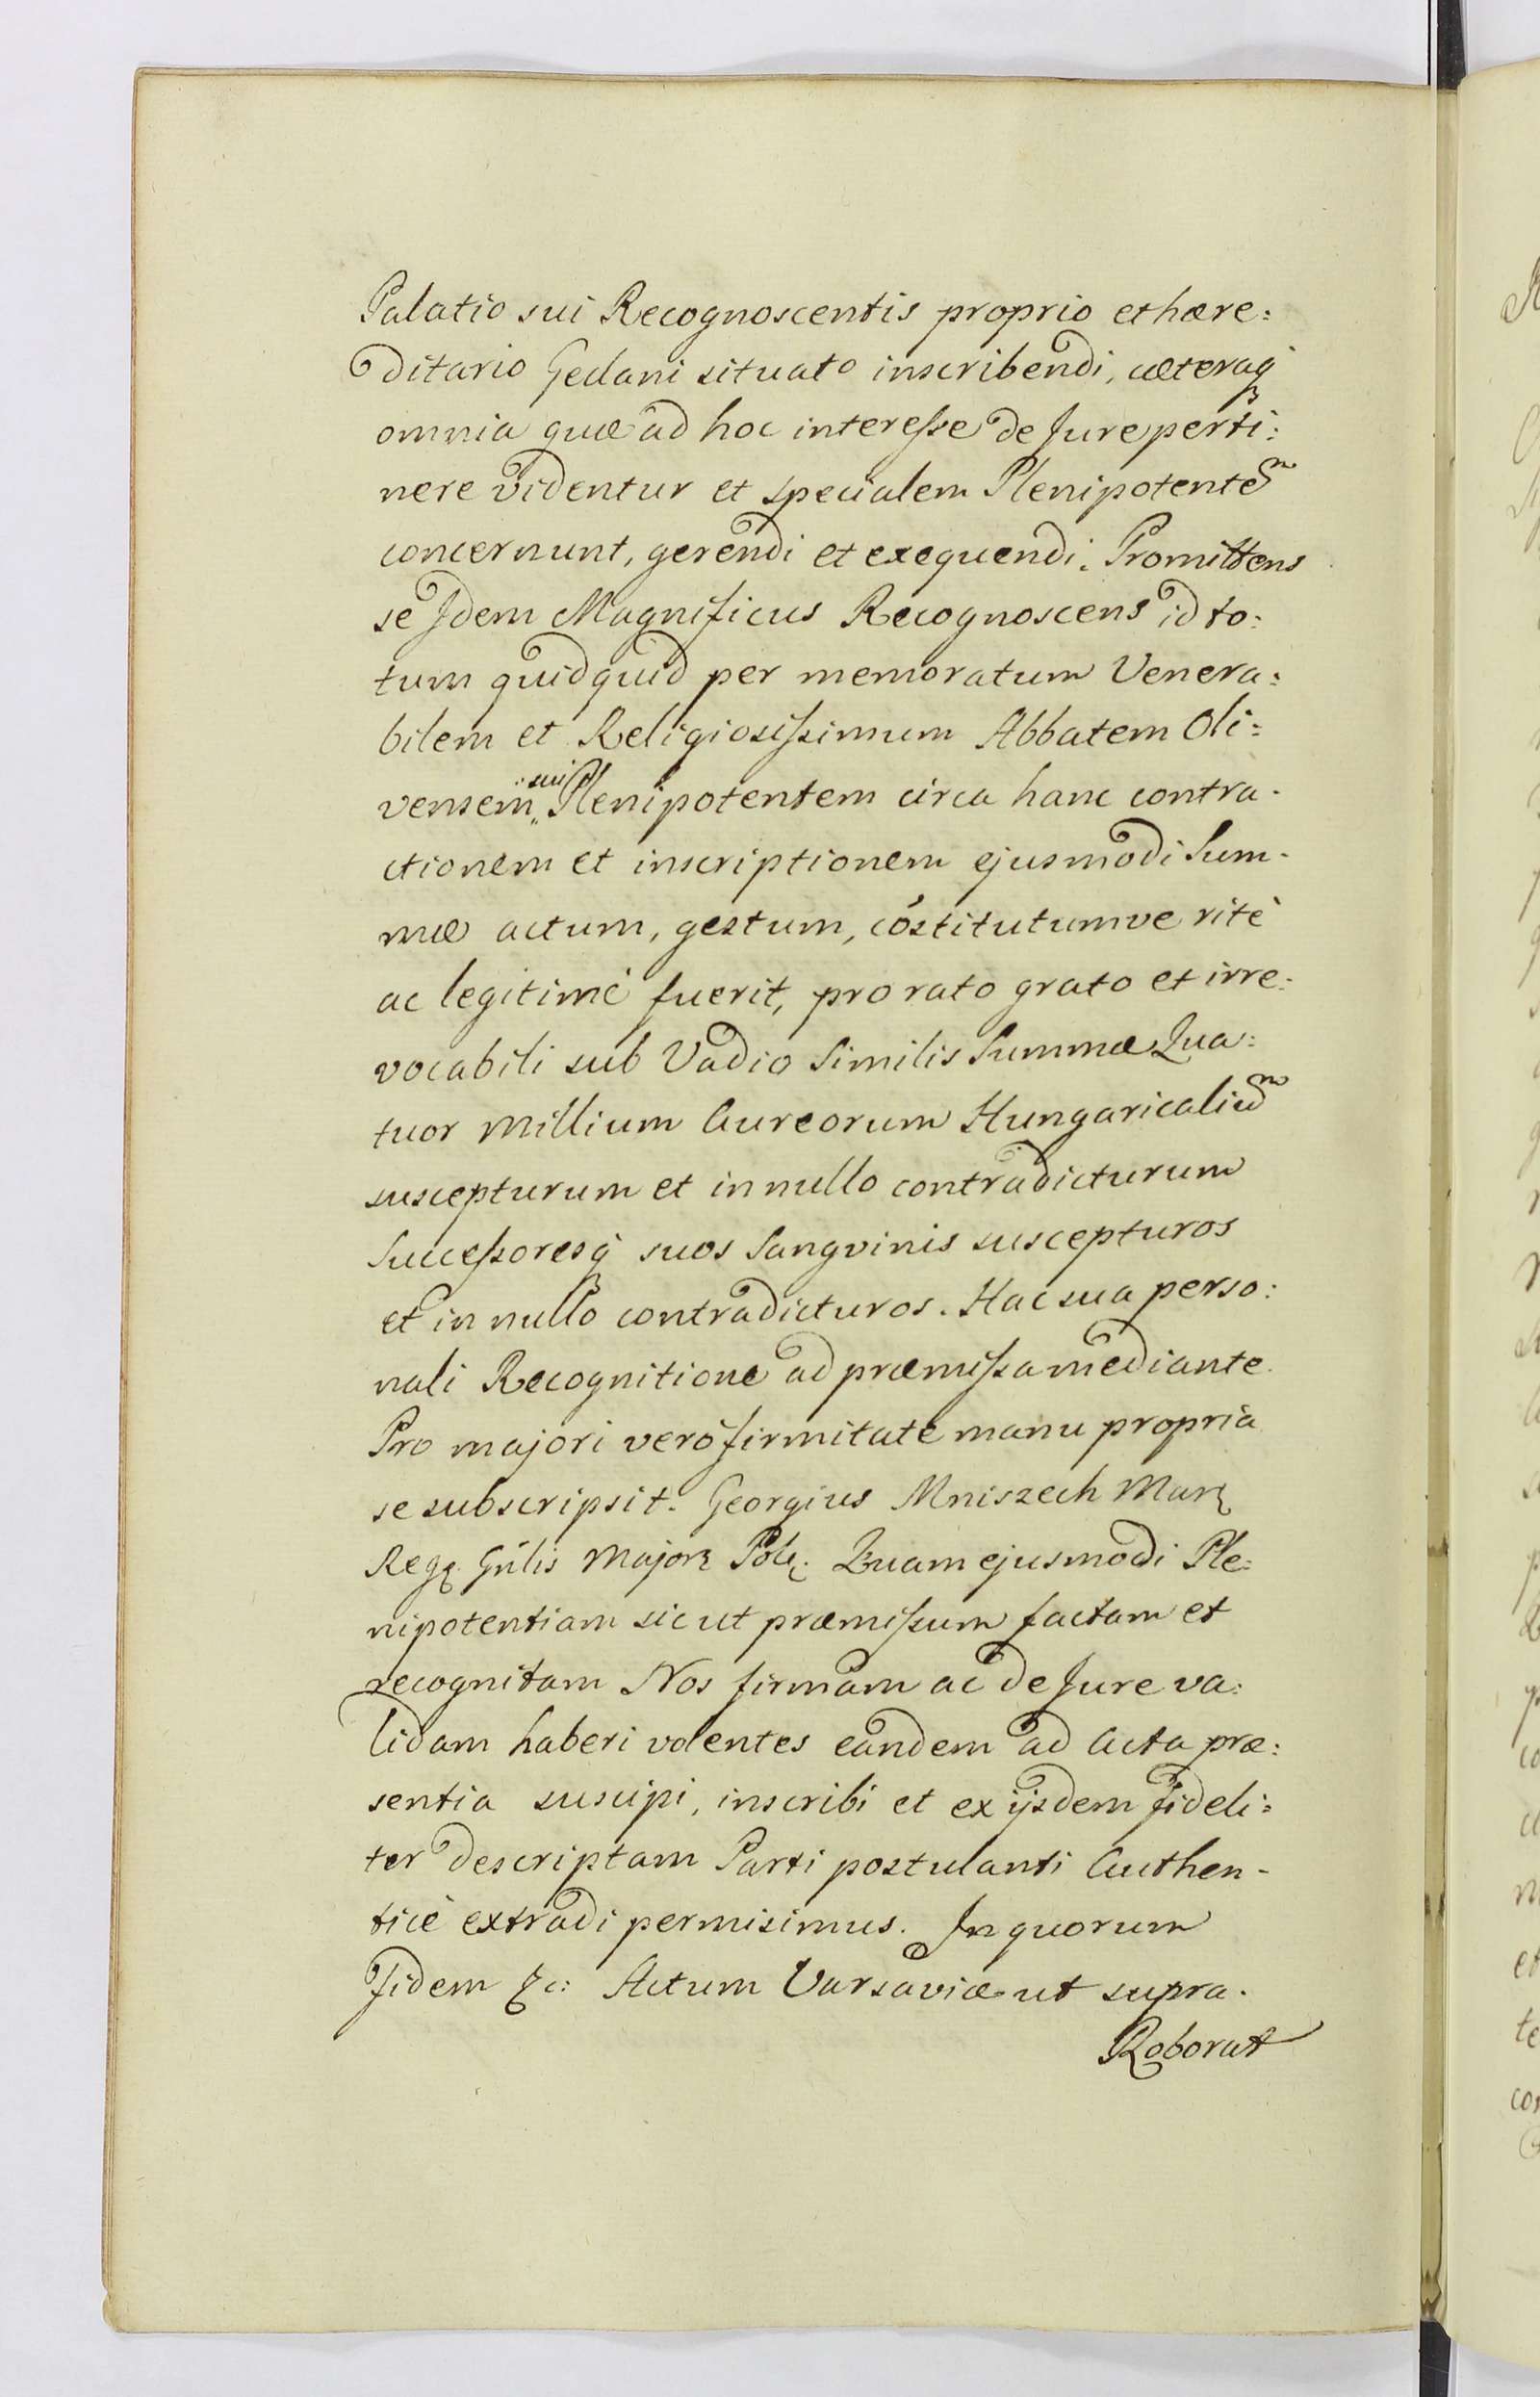 Palatio sui Recognoscentis proprio et hære:
ditario Gedani situato inscribendi, cæteraq́
omnia quæ ad hoc interesse de Jure perti:
nere videntur et specialem Plenipotentem
concernunt, gerendi et exequendi. Promittens
se Idem Magnificus Recognoscens id to:
tum quidquid per memoratum Venera:
bilem et Religiosissimum Abbatem Oli:
vensem sui Plenipotentem circa hanc contra-
ctionem et inscriptionem ejusmodi Sum-
mæ actum, gestum, cõstitutumve ritè
ac legitimè fuerit, pro rato grato et irre:
vocabili sub Vadio Similis Summæ Qua:
tuor Millium Aureorum Hungaricalium
suscepturum et in nullo contradicturum
Successoresq́ suos Sangvinis suscepturos
et in nullo contradicturos. Hac sua perso:
nali Recognitione ad præmissa mediante.
Pro majori verò firmitate manu propria
se subscripsit. Georgius Mniszech Mar:
Reg: Gńlis Major: Pol: Quam ejusmodi Ple:
nipotentiam sicut præmissum factam et
recognitam Nos firmam ac de Jure va:
lidam haberi volentes eandem ad Acta præ:
sentia suscipi, inscribi et ex ijsdem fideli:
ter descriptam Parti postulanti Authen-
ticè extradi permisimus. In quorum
Fidem &c: Actum Varsaviæ ut supra.
Roborat